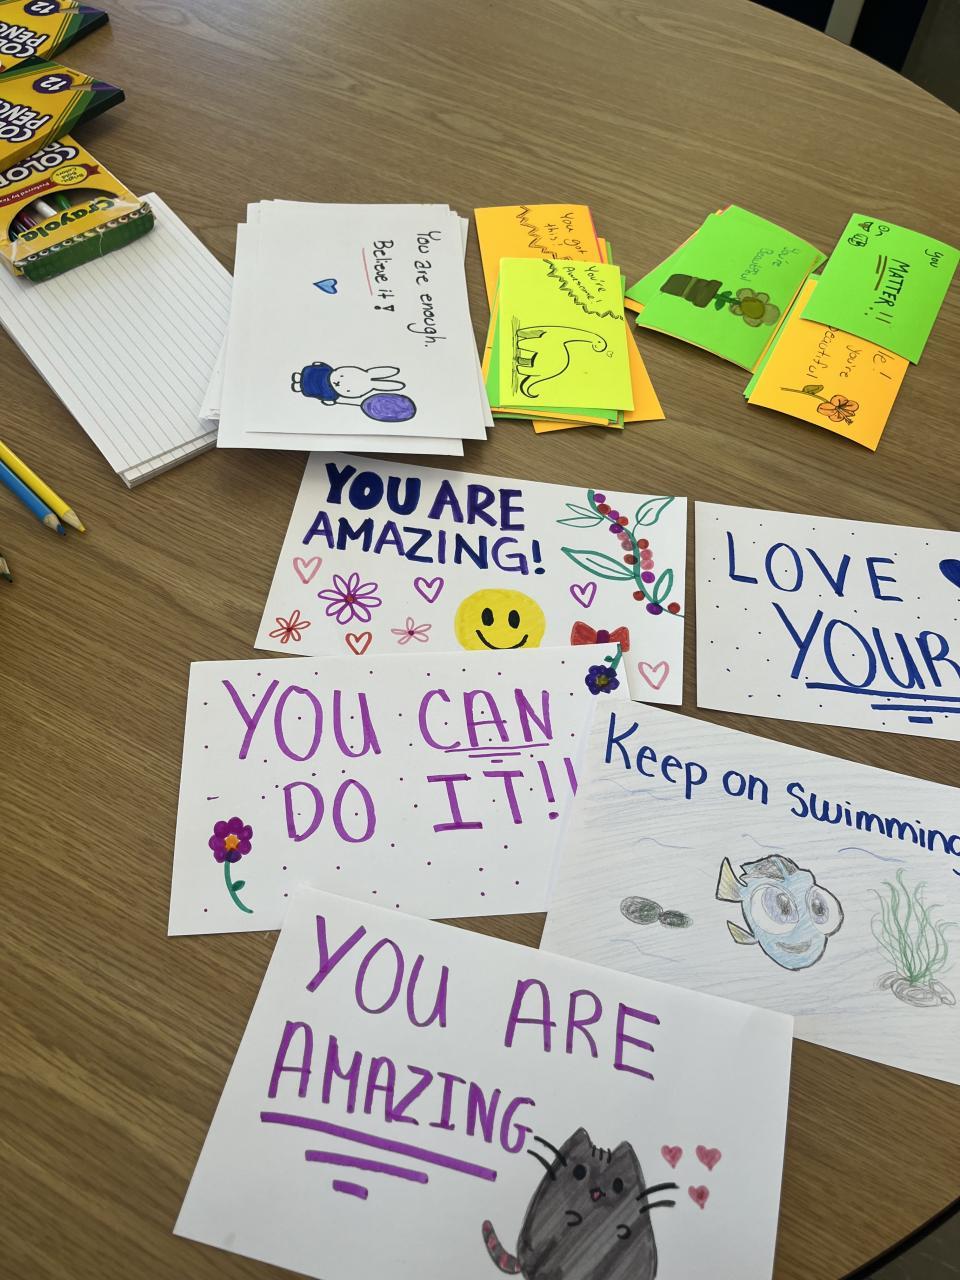 12
COLO
PENC
12
COLO
PENC
COLOR
Bright, Bold
Colors
Preferred by
Crayola
You are enough.
Believe it!
You got
this!
You're
Awesome!
You're
Beautiful
you
MATTER!!
you're
beautiful
YOU ARE
AMAZING!
LOVE
YOUR
YOU CAN
DO IT!!
Keep on Swimming
YOU ARE
AMAZING